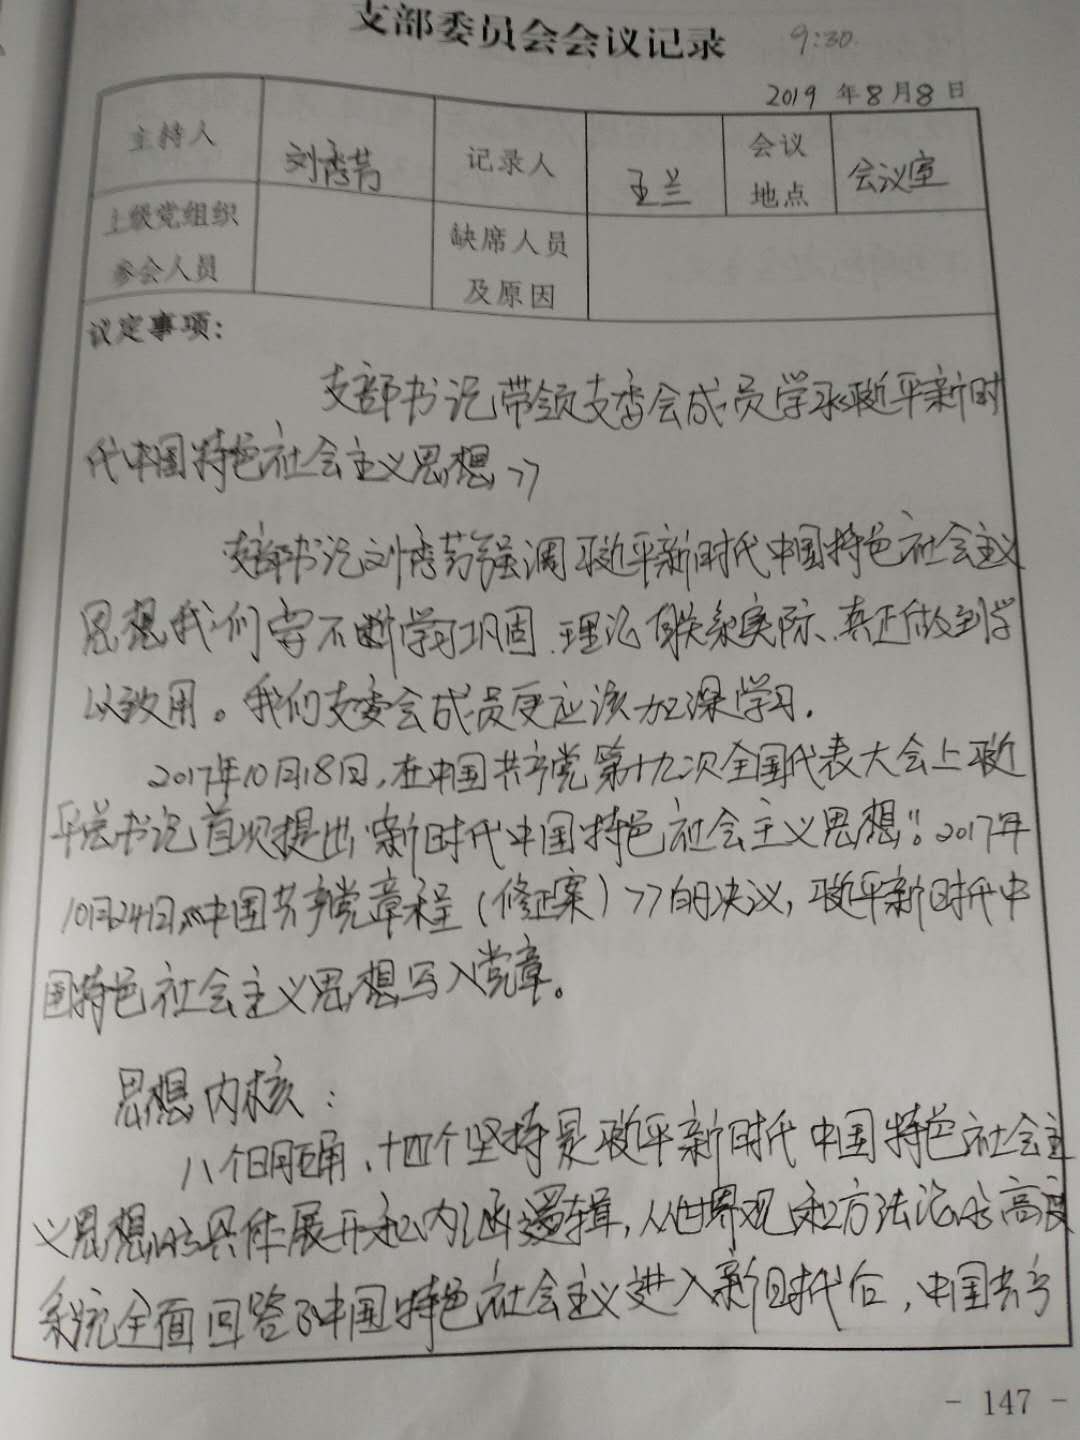 支部委员会会议记录 9:30
2019 年 8 月 8 日
主持人 刘秀芳 记录人 王兰 会议地点 会议室
上级党组织参会人员 缺席人员及原因
议定事项：
支部书记带领支委会成员学习近平新时
代中国特色社会主义思想》
支部书记刘秀芳强调习近平新时代中国特色社会主义
思想我们要不断学习巩固、理论联系实际、真正做到学
以致用。我们支委会成员更应该加深学习.
2017年10月18日,在中国共产党第十九次全国代表大会上习近
平总书记首次提出“新时代中国特色社会主义思想”。2017年
10月24日,《中国共产党章程（修正案）》的决议，习近平新时代中
国特色社会主义思想写入党章。
思想内核：
八个明确、十四个坚持是习近平新时代中国特色社会主
义思想的具体展开和内涵逻辑，从世界观和方法论的高度
系统全面回答了中国特色社会主义进入新时代后，中国共产
- 147 -